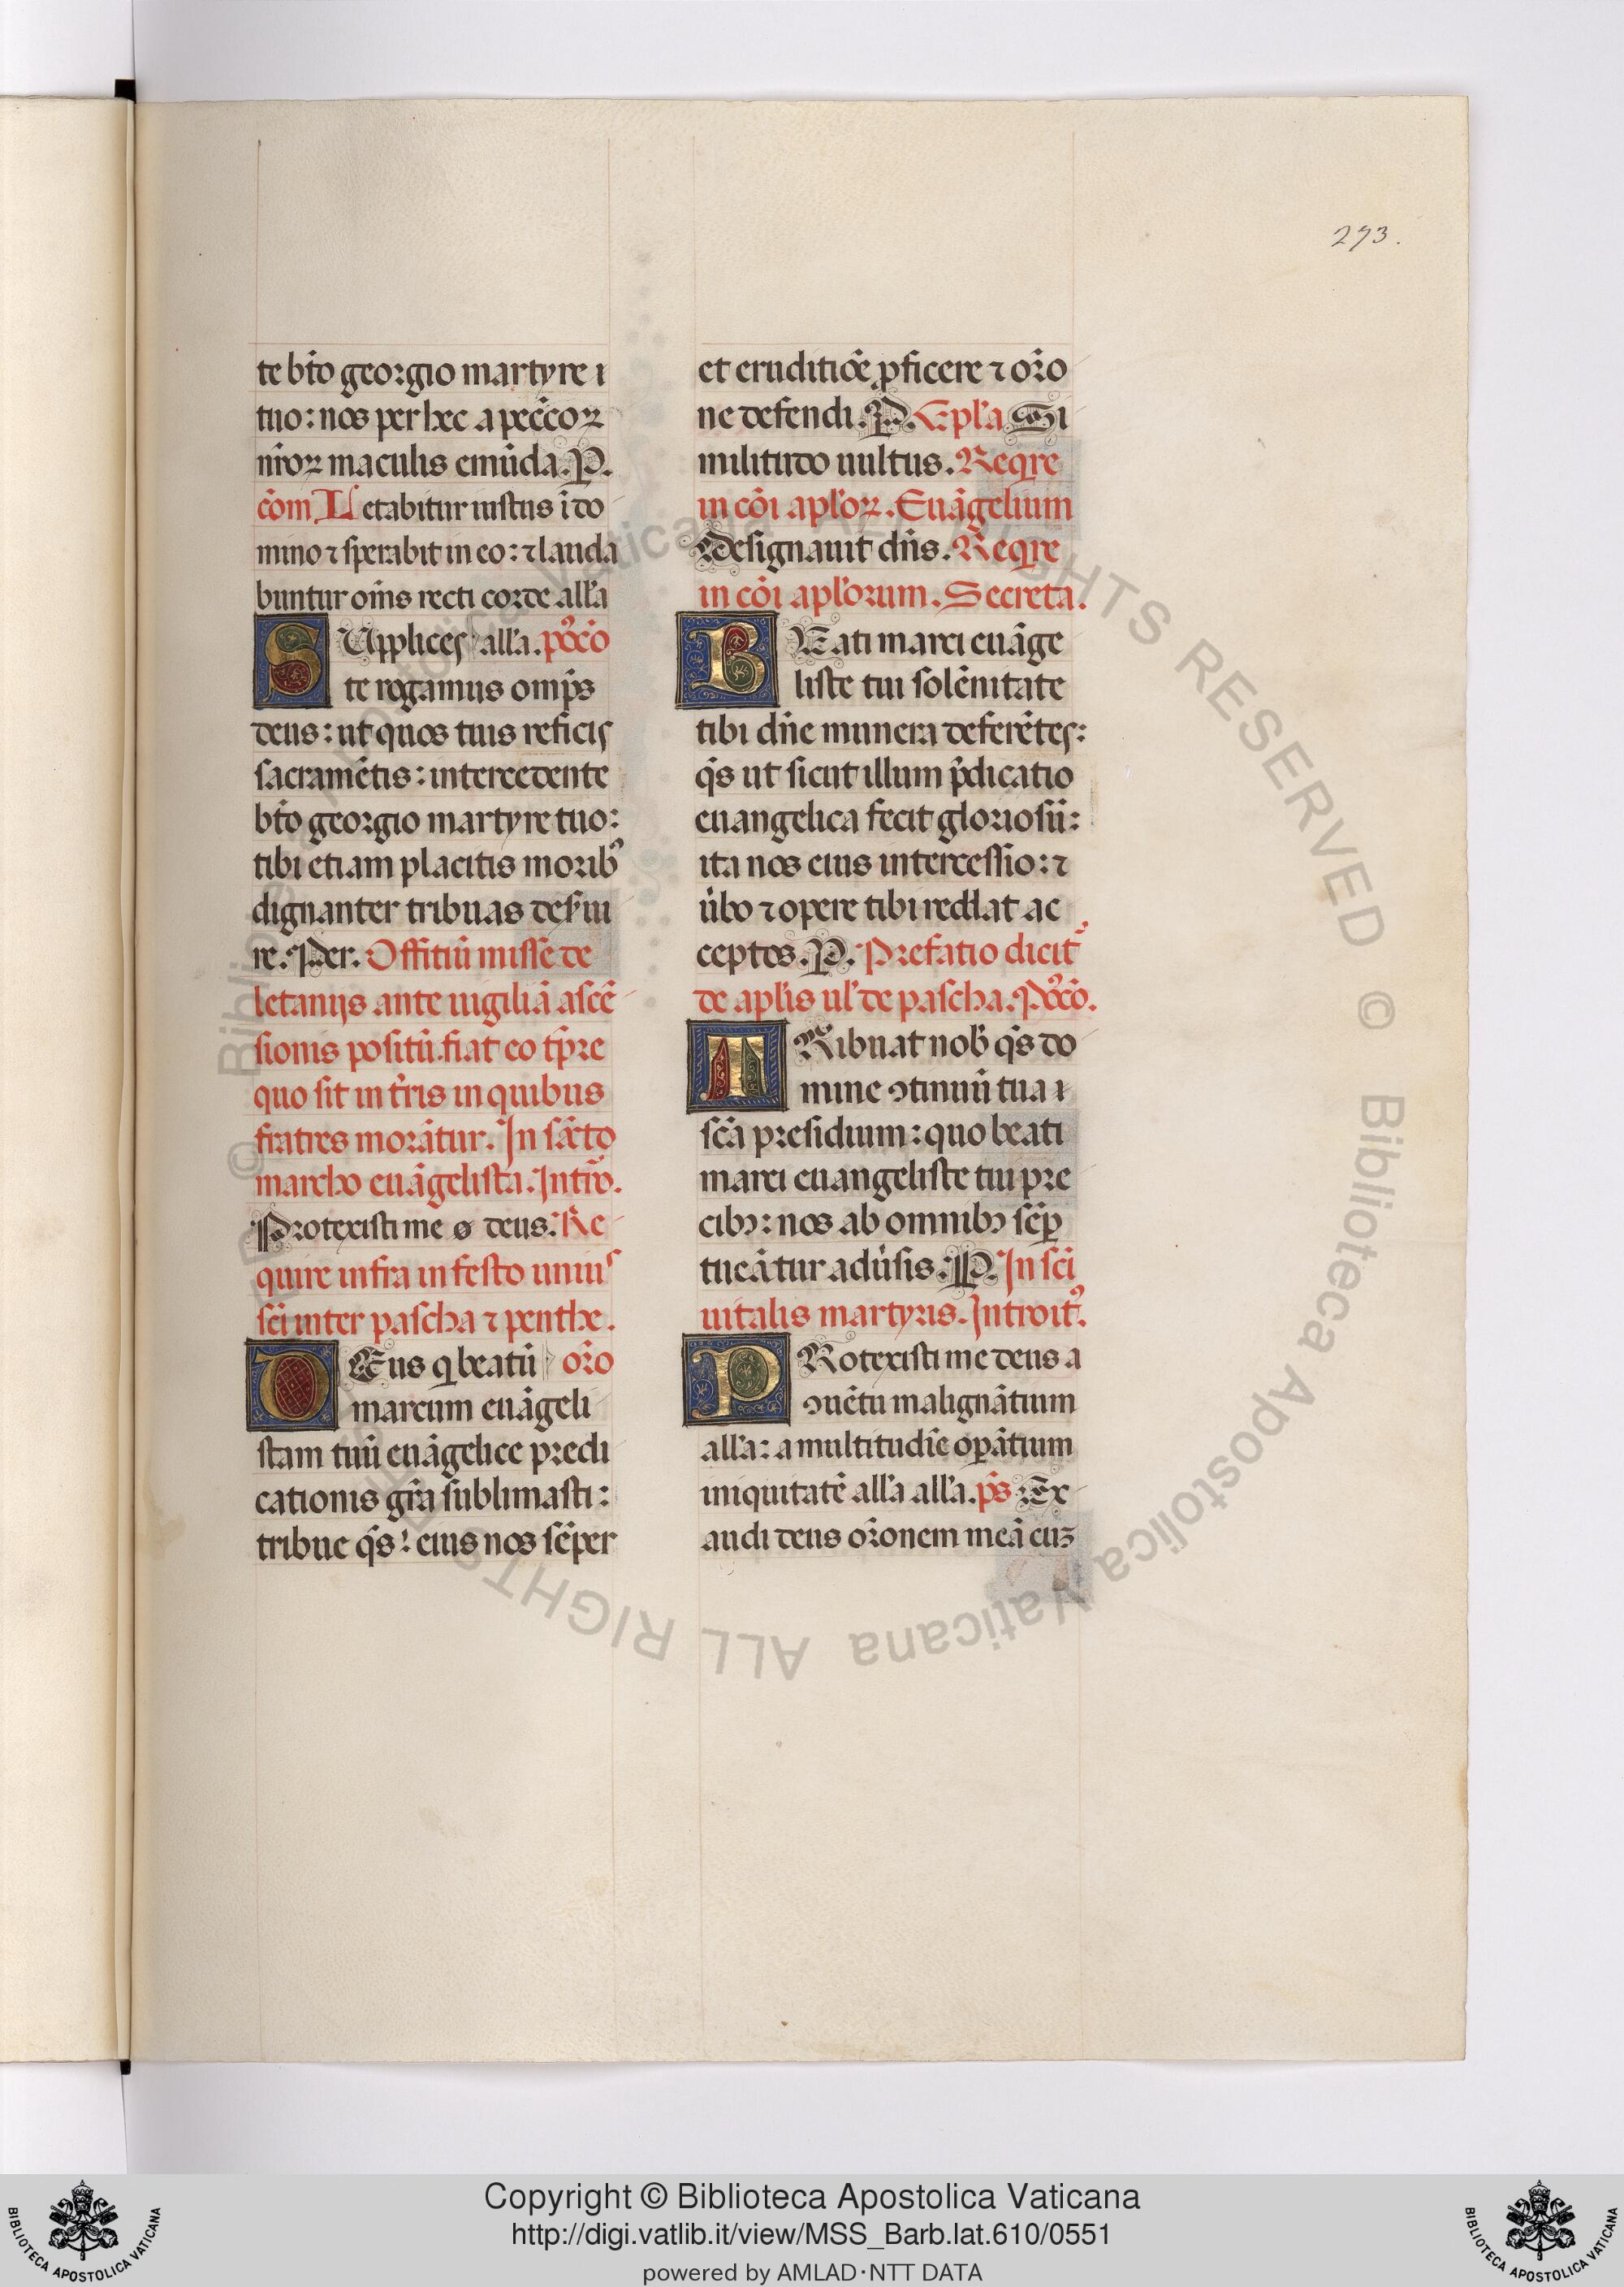 273.
te bt̃o georgio martyre ⁊
tuo: nos per hec a pec̃coꝝ
nr̃oꝝ maculis emũda. P.
cõm Letabitur iustus ĩ do
mino ⁊ sperabit in eo: ⁊ lauda
buntur om̃s recti corde all'a
SUpplices all'a. põcõ
te rogamus omp̃s
deus: ut quos tuis reficis
sacramẽtis: intercedente
bt̃o georgio martyre tuo:
tibi etiam placitis moribꝰ
dignanter tribuas des̃ui
re. Per. Offitiũ misse de
letanijs ante uigiliã ascẽ
sionis positũ. fiat eo tp̃re
quo sit in t̃ris in quibus
fratres morãtur. In sãcto
marcho euãgelista. Intrõ.
Protexisti me ø deus. Re
quire infra in festo unius
sc̃i inter pascha ⁊ penthe.
DEus q beatũ or̃o
marcum euãgeli
stam tuũ euãgelice predi
cationis gr̃a sublimasti:
tribue q̃s: eius nos sẽper
et eruditiõe ꝓficere ⁊ or̃o
ne defendi. P. Epl'a Si
militudo uultus. Reqre
in cõi apl'oꝝ. Euãgelium
Designauit dñs. Reqre
in cõi apl'orum. Secreta.
BEati marci euãge
liste tui solẽnitate
tibi dñe munera deferẽtes:
q̃s ut sicut illum p̃dicatio
euangelica fecit gloriosũ:
ita nos eius intercessio: ⁊
ũbo ⁊ opere tibi reddat ac
ceptos. P. Prefatio dicit᷑
de apl'is ul' de pascha. Põcõ.
TRibuat nob' q̃s do
mine ꝯtinuũ tua ⁊
sc̃a presidium: quo beati
marci euangeliste tui pre
cibꝫ: nos ab omnibꝫ sẽꝑ
tueãtur adũsis. P. In sc̃i
uitalis martyris. Introitꝰ.
PRotexisti me deus a
ꝯuẽtu malignãtium
all'a: a multitudĩe oꝑãtium
iniquitatẽ all'a all'a. p̃s Ex
audi deus or̃onem meã cuꝫ
© Biblioteca Apostolica Vaticana ALL RIGHTS RESERVED © Biblioteca Apostolica Vaticana ALL RIGHTS
Copyright © Biblioteca Apostolica Vaticana
http://digi.vatlib.it/view/MSS_Barb.lat.610/0551
powered by AMLAD·NTT DATA
BIBLIOTECA APOSTOLICA VATICANA
BIBLIOTECA APOSTOLICA VATICANA